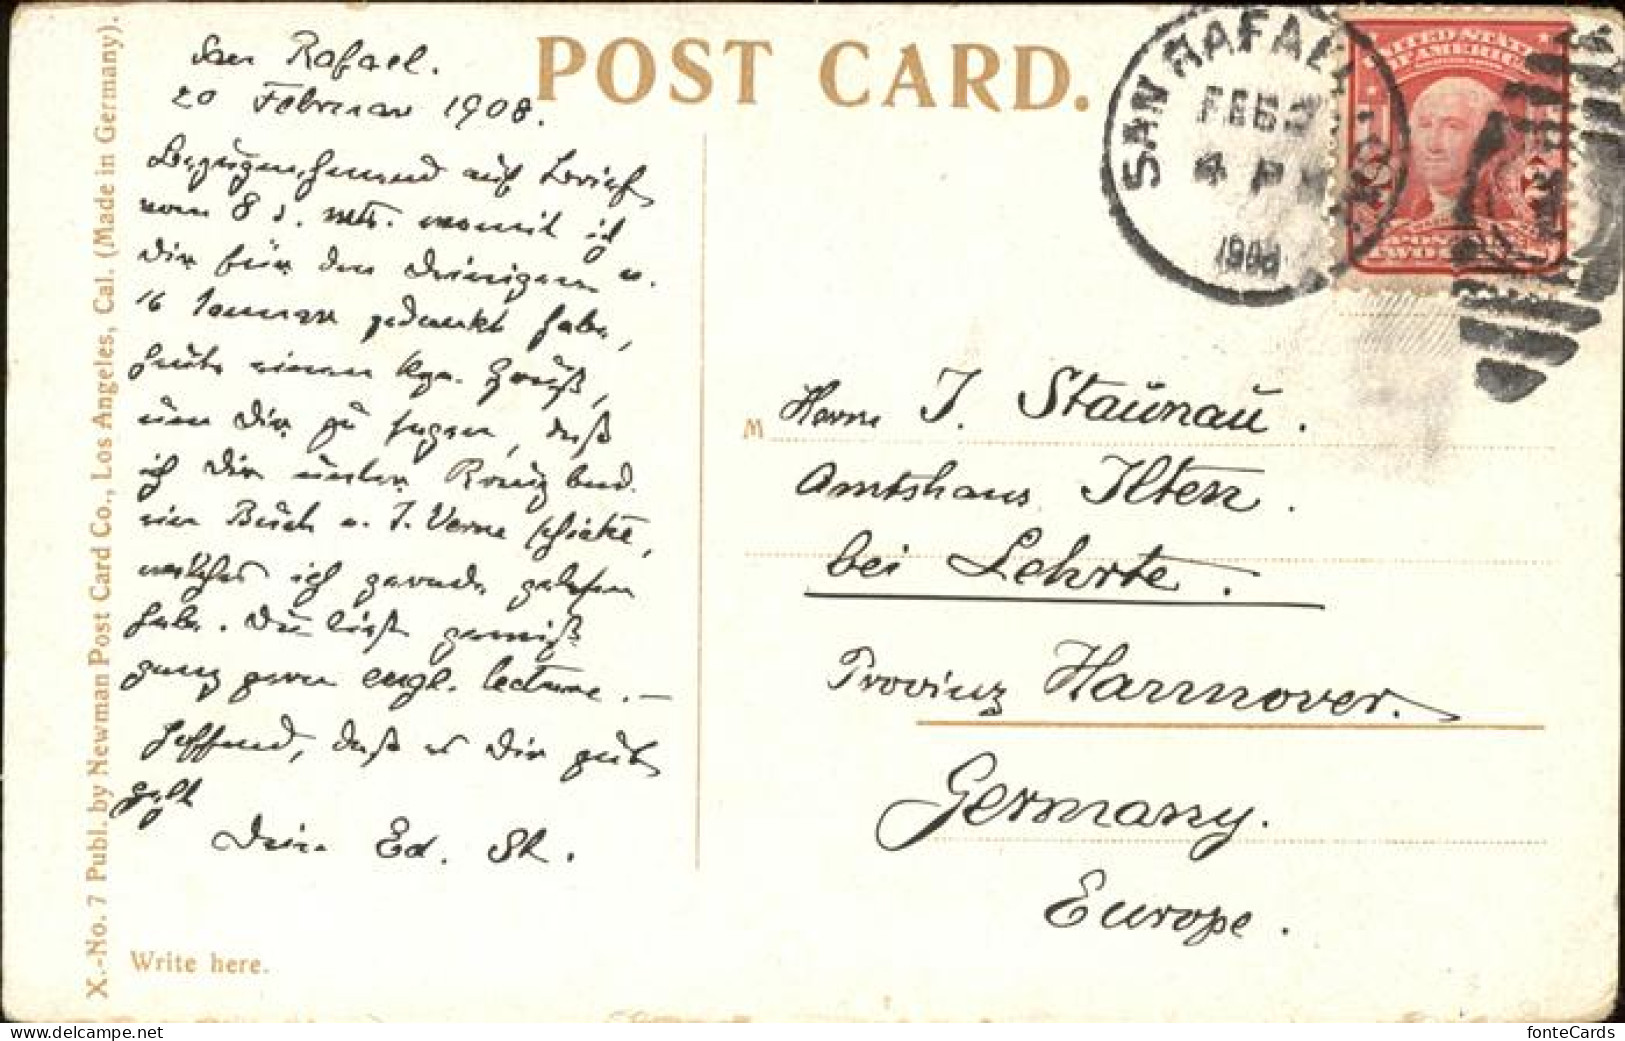 X.-No. 7 Publ. by Newman Post Card Co., Los Angeles, Cal. (Made in Germany).
POST CARD.
San Rafael.
20 Februar 1908.
Bezugnehmend auf Brief
vom 8 d. mts. womit ich
Dir für den Deinigen v.
16 Januar gedankt habe,
heute einen kzn. Gruß,
um Dir zu sagen, daß
ich Dir unter Kreuzband
ein Buch v. J. Verne schickte,
welches ich gerade gelesen
habe. Du liest gewiß
ganz gern engl. lecture. —
Hoffend, daß es Dir gut
geht
Dein Ed. St.
Write here.
SAN RAFAEL, CAL.
FEB 2
4 PM
1908
UNITED STATES
OF AMERICA
M Herrn J. Staŭnaŭ.
Amtshaus Ilten.
bei Lehrte.
Provinz Hannover.
Germany.
Europe.
fonteCards
www.delcampe.net